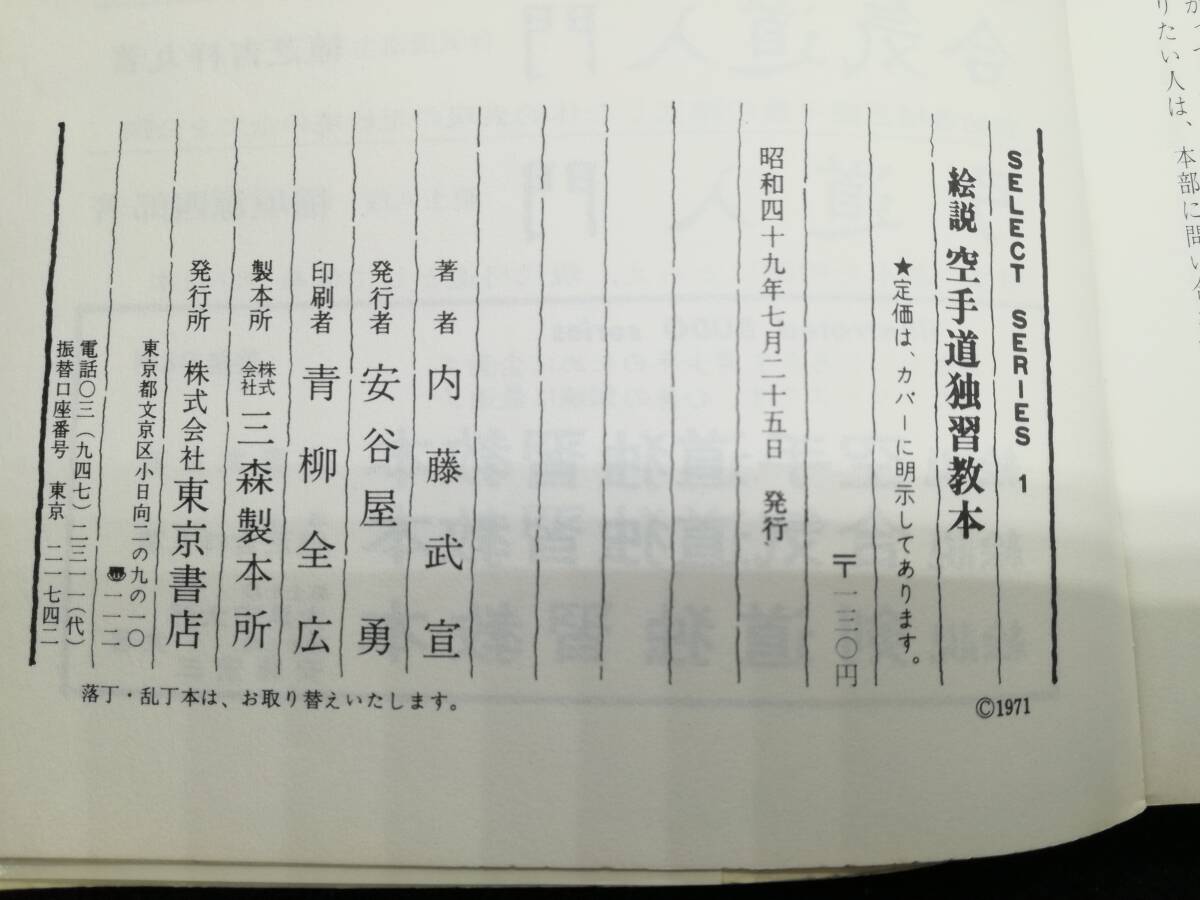 りたい人は、本部に問い
SELECT SERIES 1
絵説 空手道独習教本
★定価は、カバーに明示してあります。
〒一三〇円
昭和四十九年七月二十五日 発行
著者 内藤武宣
発行者 安谷屋勇
印刷者 青柳全広
製本所 株式会社 三森製本所
発行所 株式会社 東京書店
東京都文京区小日向二の九の一〇
〠一一二
電話〇三(九四七)二三一一(代)
振替口座番号 東京 二一七四二
落丁・乱丁本は、お取り替えいたします。
©1971